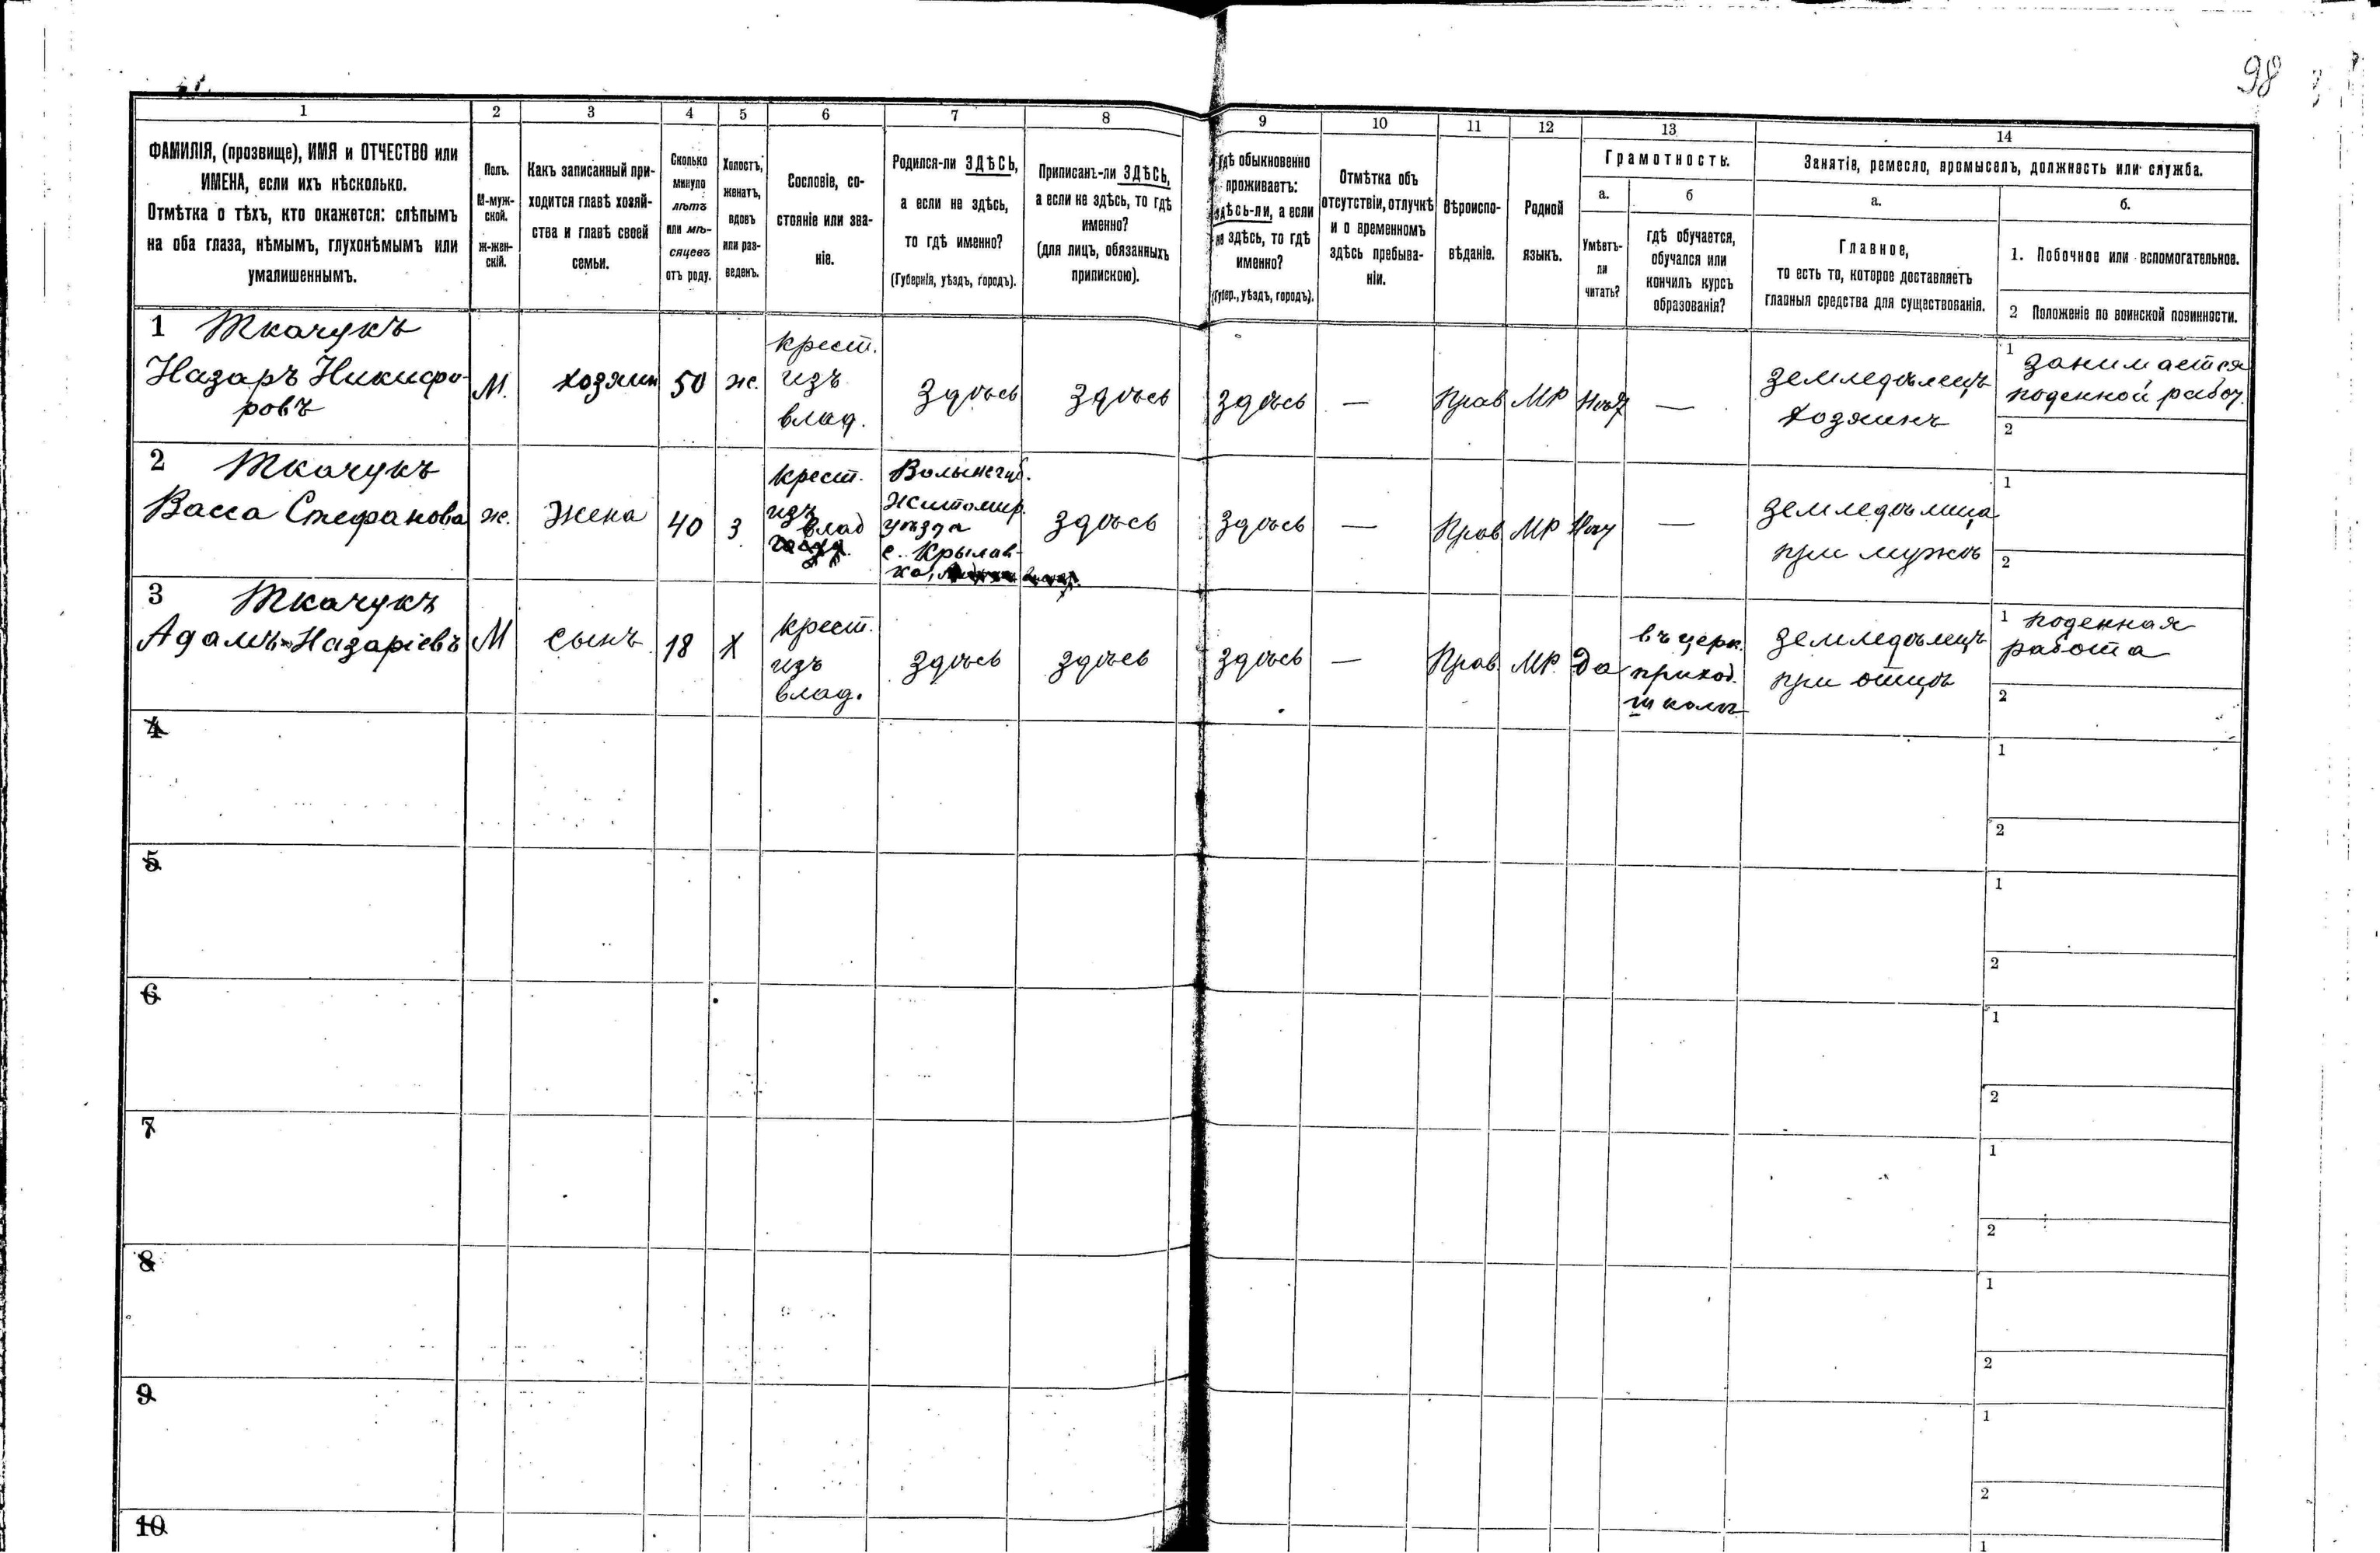 98
1 2 3 4 5 6 7 8 9 10 11 12 13 14
ФАМИЛІЯ, (прозвище), ИМЯ и ОТЧЕСТВО или
ИМЕНА, если ихъ нѣсколько.
Отмѣтка о тѣхъ, кто окажется: слѣпымъ
на оба глаза, нѣмымъ, глухонѣмымъ или
умалишеннымъ.
Полъ.
М-муж-
ской.
Ж-жен-
скій.
Какъ записанный при-
ходится главѣ хозяй-
ства и главѣ своей
семьи.
Сколько
минуло
лѣтъ
или мѣ-
сяцевъ
отъ роду.
Холостъ,
женатъ,
вдовъ
или раз-
веденъ.
Сословіе, со-
стояніе или зва-
ніе.
Родился-ли ЗДѢСЬ,
а если не здѣсь,
то гдѣ именно?
(Губернія, уѣздъ, городъ).
Приписанъ-ли ЗДѢСЬ,
а если не здѣсь, то гдѣ
именно?
(для лицъ, обязанныхъ
припискою).
Гдѣ обыкновенно
проживаетъ:
здѣсь-ли, а если
не здѣсь, то гдѣ
именно?
(Губер., уѣздъ, городъ).
Отмѣтка объ
отсутствіи, отлучкѣ
и о временномъ
здѣсь пребыва-
ніи.
Вѣроиспо-
вѣданіе.
Родной
языкъ.
Грамотность.
а.
Умѣетъ-
ли
читать?
б
гдѣ обучается,
обучался или
кончилъ курсъ
образованія?
Занятія, ремесло, промыселъ, должность или служба.
а.
Главное,
то есть то, которое доставляетъ
главныя средства для существованія.
б.
1. Побочное или вспомогательное.
2 Положеніе по воинской повинности.
1 Ткачукъ
Назаръ Никифо-
ровъ
М.
хозяин
50
ж.
крест.
изъ
влад.
Здѣсь
Здѣсь
здѣсь
—
Прав
МР
Нѣт
—
земледѣлецъ
хозяинъ
1 занимается
поденной работ.
2
2 Ткачукъ
Васса Стефанова
ж.
Жена
40
З
крест.
изъ
влад
Волынс губ.
Житомир.
уѣзда
с. Крылав-
ка,
здѣсь
здѣсь
—
Прав
МР
Нѣт
—
земледѣлица
при мужѣ
1
2
3 Ткачукъ
Адамъ Назаріевъ
М
сынъ
18
Х
крест.
изъ
влад.
здѣсь
здѣсь
здѣсь
—
Прав.
МР.
Да
въ церк.
приход.
школѣ
земледѣлецъ
при отцѣ
1 поденная
работа
2
4
1
2
5
1
2
6
1
2
7
1
2
8
1
2
9
1
2
10
1